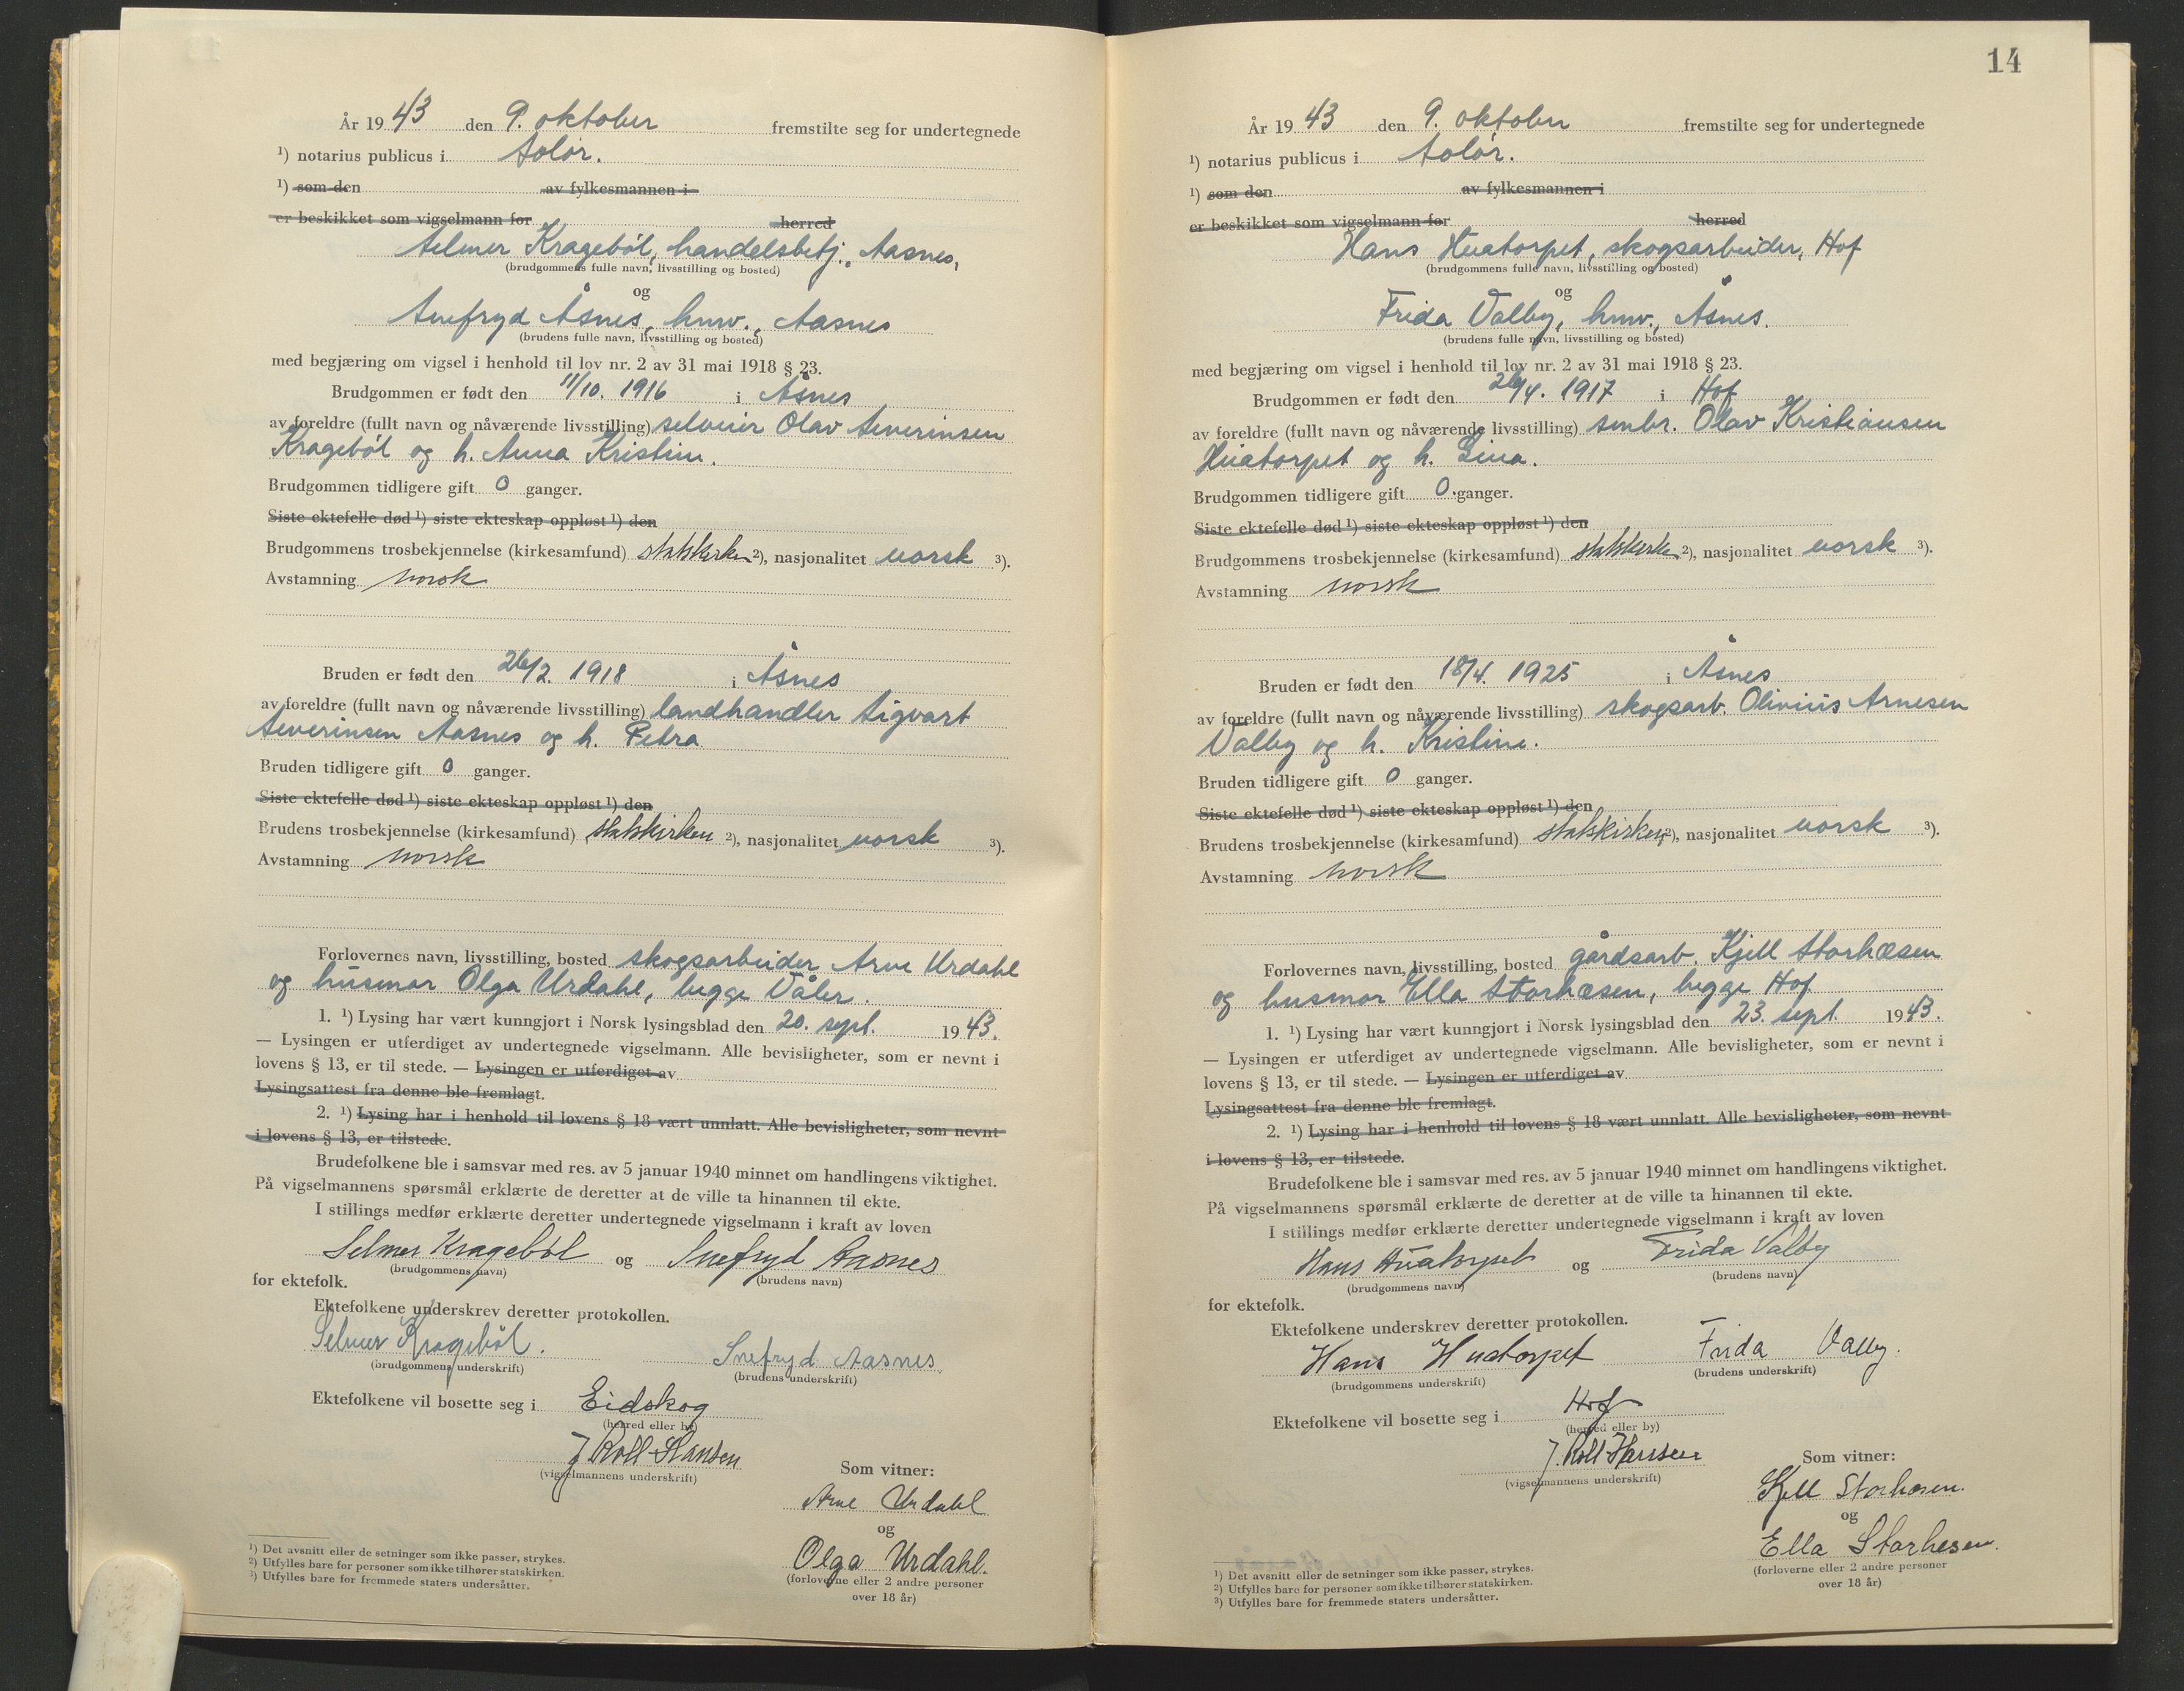 År 19 43 den 9. oktober fremstilte seg for undertegnede
¹) notarius publicus i Solør.
¹) som den av fylkesmannen i
er beskikket som vigselmann for herred
Selmer Krageböl, handelsbetj., Aasnes,
(brudgommens fulle navn, livsstilling og bosted)
og
Snefryd Åsnes, hmv., Aasnes
(brudens fulle navn, livsstilling og bosted)
med begjæring om vigsel i henhold til lov nr. 2 av 31 mai 1918 § 23.
Brudgommen er født den 11/10. 1916 i Åsnes
av foreldre (fullt navn og nåværende livsstilling) selveier Olav Severinsen
Krageböl og h. Anna Kristine.
Brudgommen tidligere gift 0 ganger.
Siste ektefelle død ¹) siste ekteskap oppløst ¹) den
Brudgommens trosbekjennelse (kirkesamfund) statskirken ²), nasjonalitet norsk ³).
Avstamning norsk
Bruden er født den 26/2. 1918 i Åsnes
av foreldre (fullt navn og nåværende livsstilling) landhandler Sigvart
Severinsen Aasnes og h. Petra
Bruden tidligere gift 0 ganger.
Siste ektefelle død ¹) siste ekteskap oppløst ¹) den
Brudens trosbekjennelse (kirkesamfund) statskirken ²), nasjonalitet norsk ³).
Avstamning norsk
Forlovernes navn, livsstilling, bosted skogsarbeider Arve Urdahl
og husmor Olga Urdahl, begge Våler.
1. ¹) Lysing har vært kunngjort i Norsk lysingsblad den 20. sept. 1943.
— Lysingen er utferdiget av undertegnede vigselmann. Alle bevisligheter, som er nevnt i
lovens § 13, er til stede. — Lysingen er utferdiget av
Lysingsattest fra denne ble fremlagt.
2. ¹) Lysing har i henhold til lovens § 18 vært unnlatt. Alle bevisligheter, som nevnt
i lovens § 13, er tilstede.
Brudefolkene ble i samsvar med res. av 5 januar 1940 minnet om handlingens viktighet.
På vigselmannens spørsmål erklærte de deretter at de ville ta hinannen til ekte.
I stillings medfør erklærte deretter undertegnede vigselmann i kraft av loven
Selmer Krageböl og Snefryd Aasnes
(brudgommens navn) (brudens navn)
for ektefolk.
Ektefolkene underskrev deretter protokollen.
Selmer Krageböl. Snefryd Aasnes
(brudgommens underskrift) (brudens underskrift)
Ektefolkene vil bosette seg i Eidskog
(herred eller by)
J Roll-Hansen
(vigselmannens underskrift)
Som vitner:
Arve Urdahl
og
Olga Urdahl.
(forloverne eller 2 andre personer
over 18 år)
¹) Det avsnitt eller de setninger som ikke passer, strykes.
²) Utfylles bare for personer som ikke tilhører statskirken.
³) Utfylles bare for fremmede staters undersåtter.
14
År 19 43 den 9. oktober fremstilte seg for undertegnede
¹) notarius publicus i Solør.
¹) som den av fylkesmannen i
er beskikket som vigselmann for herred
Hans Huatorpet, skogsarbeider, Hof
(brudgommens fulle navn, livsstilling og bosted)
og
Frida Valby, hmv., Åsnes.
(brudens fulle navn, livsstilling og bosted)
med begjæring om vigsel i henhold til lov nr. 2 av 31 mai 1918 § 23.
Brudgommen er født den 26/4. 1917 i Hof
av foreldre (fullt navn og nåværende livsstilling) smbr. Olav Kristiansen
Huatorpet og h. Lina.
Brudgommen tidligere gift 0 ganger.
Siste ektefelle død ¹) siste ekteskap oppløst ¹) den
Brudgommens trosbekjennelse (kirkesamfund) statskirken ²), nasjonalitet norsk ³).
Avstamning norsk
Bruden er født den 18/4. 1925 i Åsnes
av foreldre (fullt navn og nåværende livsstilling) skogsarb. Olinius Arnesen
Valby og h. Kristine.
Bruden tidligere gift 0 ganger.
Siste ektefelle død ¹) siste ekteskap oppløst ¹) den
Brudens trosbekjennelse (kirkesamfund) statskirken ²), nasjonalitet norsk ³).
Avstamning norsk
Forlovernes navn, livsstilling, bosted gårdsarb. Kjell Storhæsen
og husmor Ella Storhæsen, begge Hof
1. ¹) Lysing har vært kunngjort i Norsk lysingsblad den 23. sept. 1943.
— Lysingen er utferdiget av undertegnede vigselmann. Alle bevisligheter, som er nevnt i
lovens § 13, er til stede. — Lysingen er utferdiget av
Lysingsattest fra denne ble fremlagt.
2. ¹) Lysing har i henhold til lovens § 18 vært unnlatt. Alle bevisligheter, som nevnt
i lovens § 13, er tilstede.
Brudefolkene ble i samsvar med res. av 5 januar 1940 minnet om handlingens viktighet.
På vigselmannens spørsmål erklærte de deretter at de ville ta hinannen til ekte.
I stillings medfør erklærte deretter undertegnede vigselmann i kraft av loven
Hans Huatorpet og Frida Valby
(brudgommens navn) (brudens navn)
for ektefolk.
Ektefolkene underskrev deretter protokollen.
Hans Huatorpet Frida Valby.
(brudgommens underskrift) (brudens underskrift)
Ektefolkene vil bosette seg i Hof
(herred eller by)
J. Roll-Hansen
(vigselmannens underskrift)
Som vitner:
Kjell Storhæsen.
og
Ella Storhesen.
(forloverne eller 2 andre personer
over 18 år)
¹) Det avsnitt eller de setninger som ikke passer, strykes.
²) Utfylles bare for personer som ikke tilhører statskirken.
³) Utfylles bare for fremmede staters undersåtter.